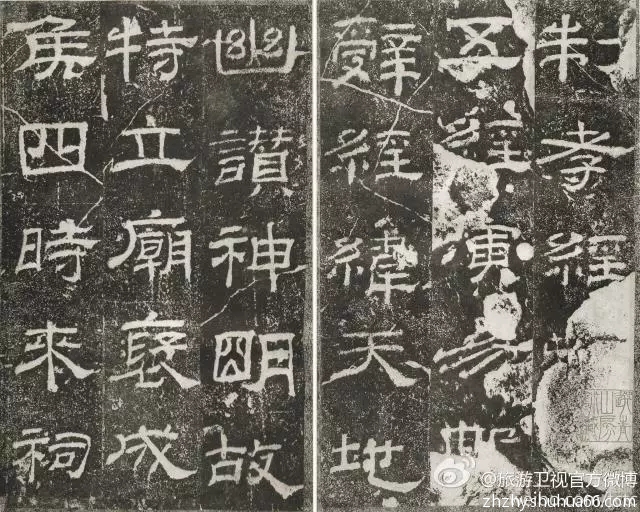 制孝經
五經演易繫
辭經緯天地
幽讚神明故
特立廟褒成
侯四時來祠
@旅游卫视官方微博
zhzhyshuhua66.com